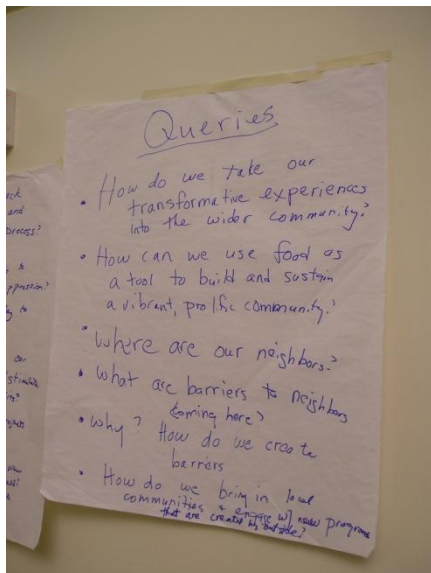 Queries
• How do we take our
transformative experiences
into the wider community?
• How can we use food as
a tool to build and sustain
a vibrant, prolific community?
• Where are our neighbors?
• What are barriers to neighbors
coming here?
• Why? How do we create
barriers
• How do we bring in local
communities & engage w/ new programs
that are created by outside?
and
process?
to
oppression?
to
our